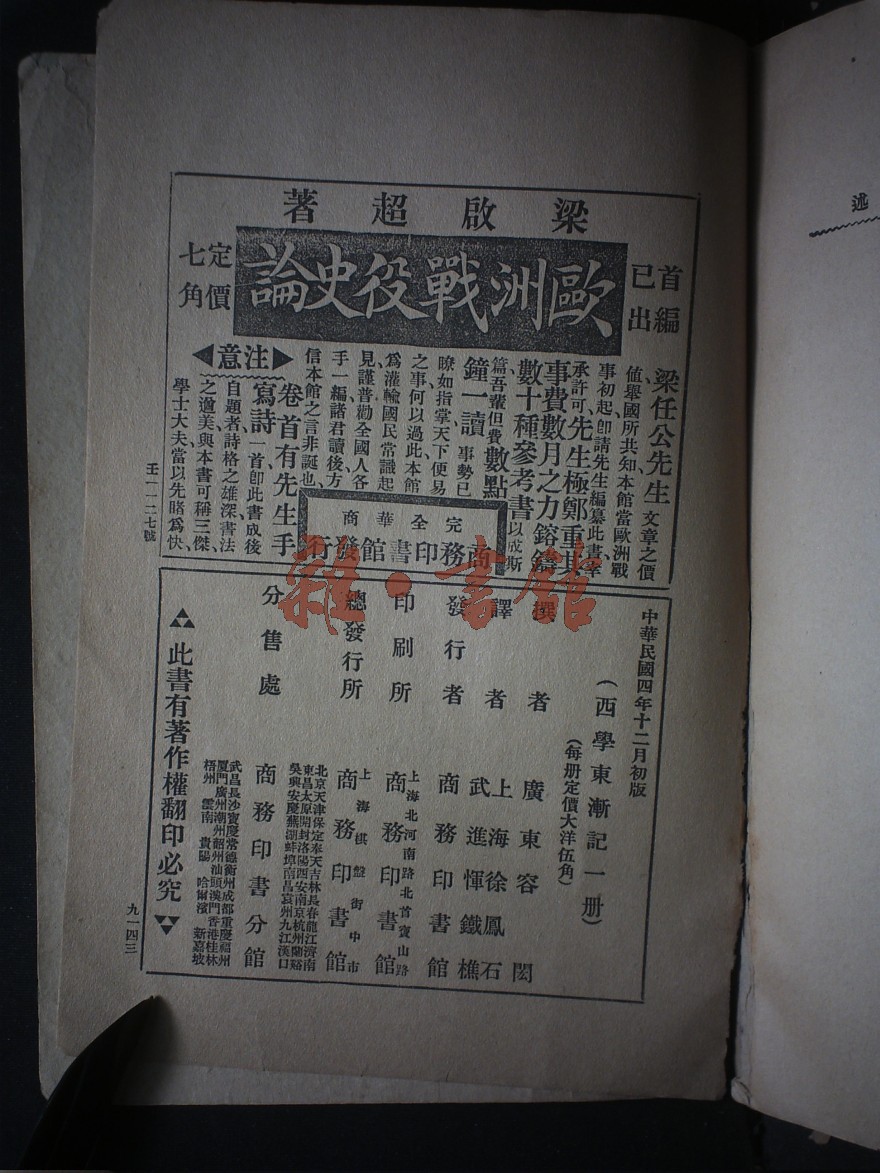 梁啟超著
首編已出
歐洲戰役史論
定價七角
梁任公先生文章之價
值、舉國所共知、本館當歐洲戰
事初起、卽請先生編纂此書、幸
承許可、先生極鄭重其
事費數月之力鎔鑄
數十種參考書以成斯
篇、吾輩但費數點
鐘一讀、事勢已
瞭如指掌、天下便易
之事、何以過此、本館
爲灌輸國民常識起
見、謹普勸全國人各
手一編、諸君讀後、方
信本館之言非誕也、
▶注意◀
卷首有先生手
寫詩一首、卽此書成後
自題者、詩格之雄深、書法
之遒美、與本書可稱三傑、
學士大夫當以先睹爲快、
完全華商
商務印書館發行
壬一一二七號
中華民國四年十二月初版
(西學東漸記一册)
(每册定價大洋伍角)
撰者 廣東容閎
譯者 上海徐鳳石
武進惲鐵樵
發行者 商務印書館
印刷所 上海北河南路北首寶山路
商務印書館
總發行所 上海棋盤街中市
商務印書館
分售處 商務印書分館
北京天津保定奉天吉林長春龍江濟南
東昌太原開封洛陽西安南京杭州蘭谿
吳興安慶蕪湖蚌埠南昌袁州九江漢口
武昌長沙寶慶常德衡州成都重慶福州
廈門廣州潮州韶州汕頭澳門香港桂林
梧州 雲南 貴陽 哈爾濱 新嘉坡
此書有著作權翻印必究
九一四三
述
雜·書館